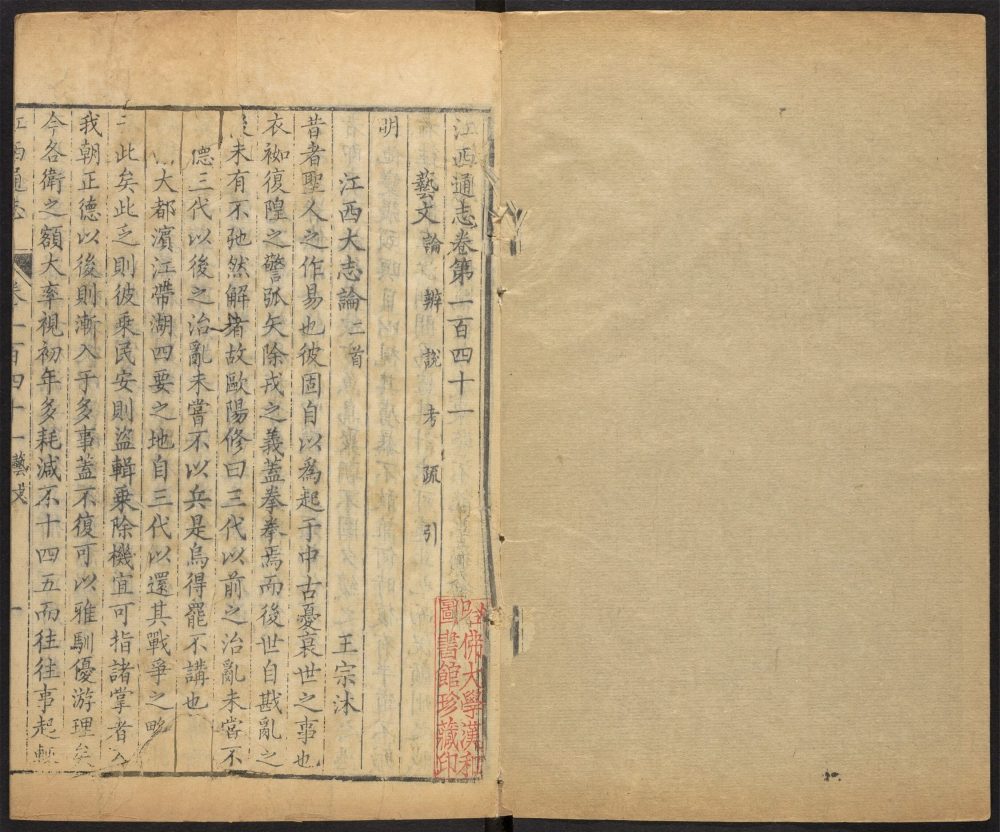 江西通志卷第一百四十一
藝文 論 辨 說 考 疏 引
明
江西大志論二首 王宗沐
昔者聖人之作易也彼固自以為起于中古憂衰世之事也
衣袽復隍之警弧矢除戎之義蓋拳拳焉而後世自戡亂之
未有不弛然解者故歐陽修曰三代以前之治亂未嘗不
德三代以後之治亂未嘗不以兵是烏得罷不講也
大都濱江帶湖四要之地自三代以還其戰爭之略
此矣此乏則彼乘民安則盜輯乗除機宜可指諸掌者
我朝正德以後則漸入于多事蓋不復可以雅馴優游理矣
今各衛之額大率視初年多耗減不十四五而往往事起輒
江西通志 卷一百四十一 藝文 一
哈佛大學漢和
圖書館珍藏印